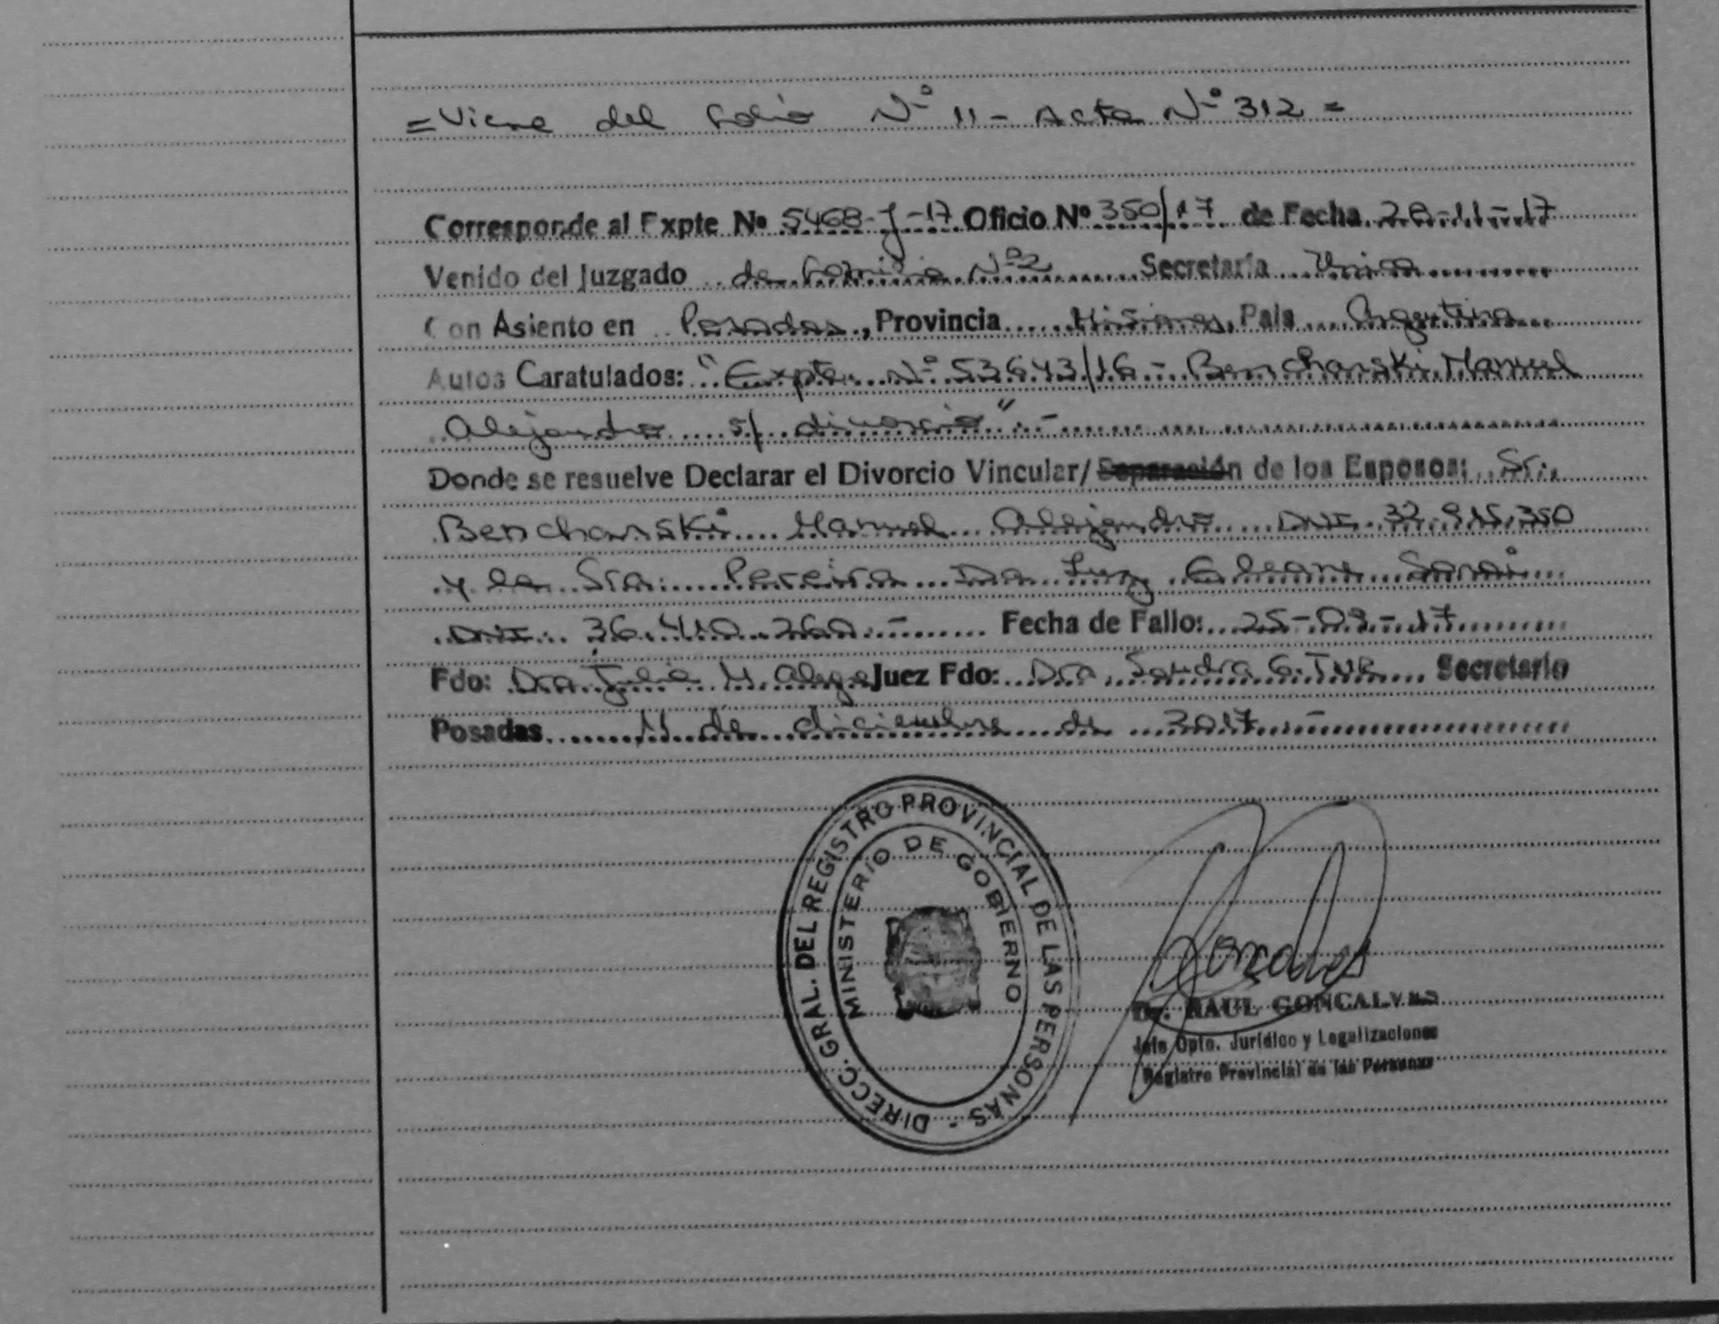 = Viene del folio Nº 11 - Acta Nº 312 =
Corresponde al Expte Nº 5468-J-17 Oficio Nº 350/17 de Fecha 28-11-17
Venido del Juzgado de Familia Nº2 Secretaría Unica
Con Asiento en Posadas, Provincia Misiones, País Argentina
Autos Caratulados: "Expte. Nº 53643/16 - Bencharski Manuel
Alejandro s/ divorcio" -
Donde se resuelve Declarar el Divorcio Vincular/ Separación de los Esposos: Sr.
Bencharski Manuel Alejandro DNI. 32.915.350
y la Sra. Pereira Da Luz Eleane Sarai
DNI. 36.410.260 - Fecha de Fallo: 25-09-17
Fdo: Dra Julia M. Juez Fdo: Dra Sandra G. Secretario
Posadas 11 de diciembre de 2017 -
DIRECC. GRAL. DEL REGISTRO PROVINCIAL DE LAS PERSONAS -
MINISTERIO DE GOBIERNO
Dr. RAUL GONCALVES
Jefe Dpto. Jurídico y Legalizaciones
Registro Provincial de las Personas